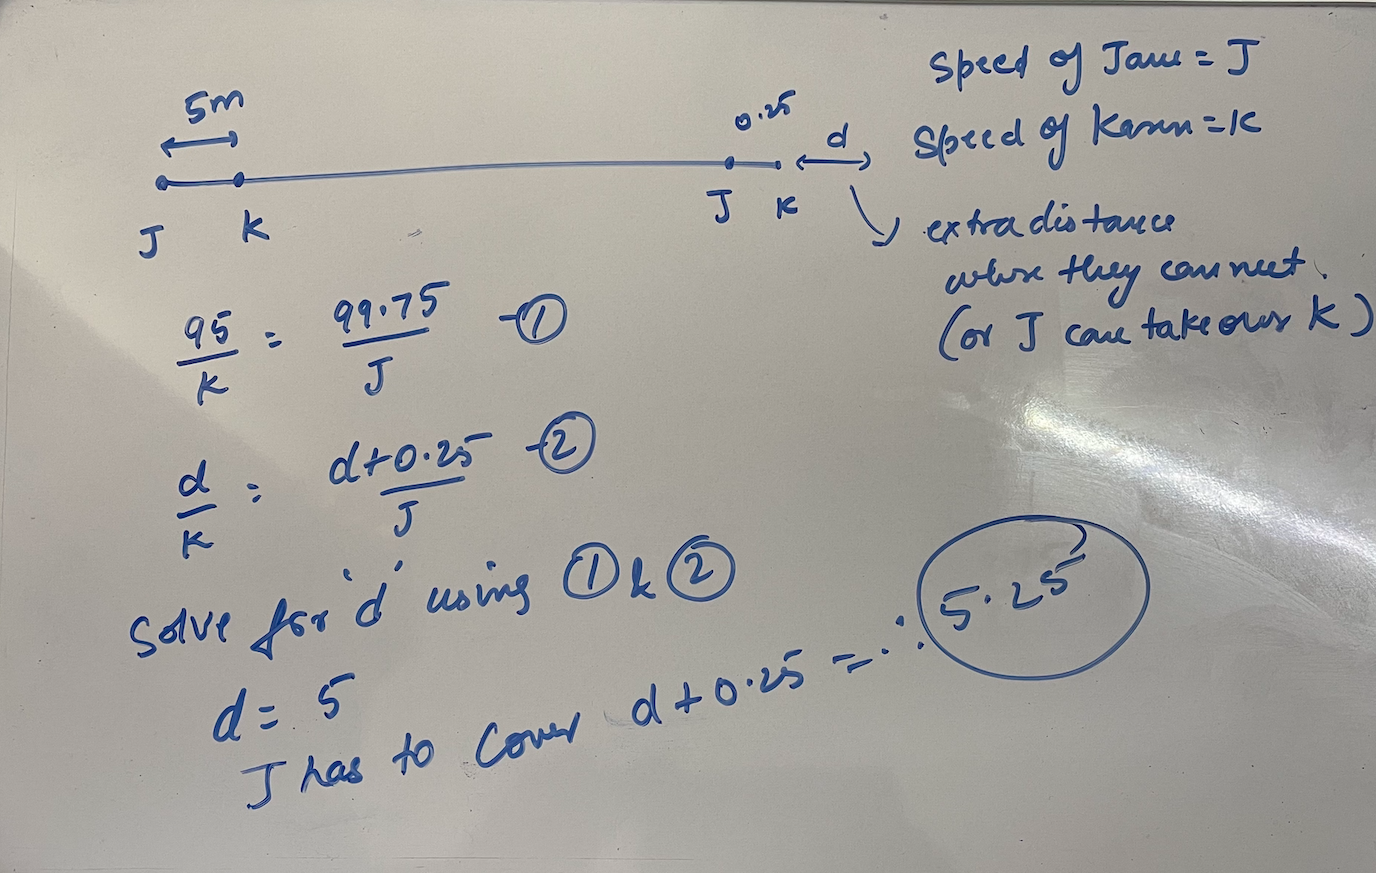 5m
J K
0.25
d
J K
Speed of Jane = J
Speed of Karen = K
extra distance
where they can meet.
(or J can take over K)
95/K = 99.75/J -①
d/K = d+0.25/J -②
Solve for 'd' using ① & ②
d = 5
J has to cover d+0.25 = 5.25